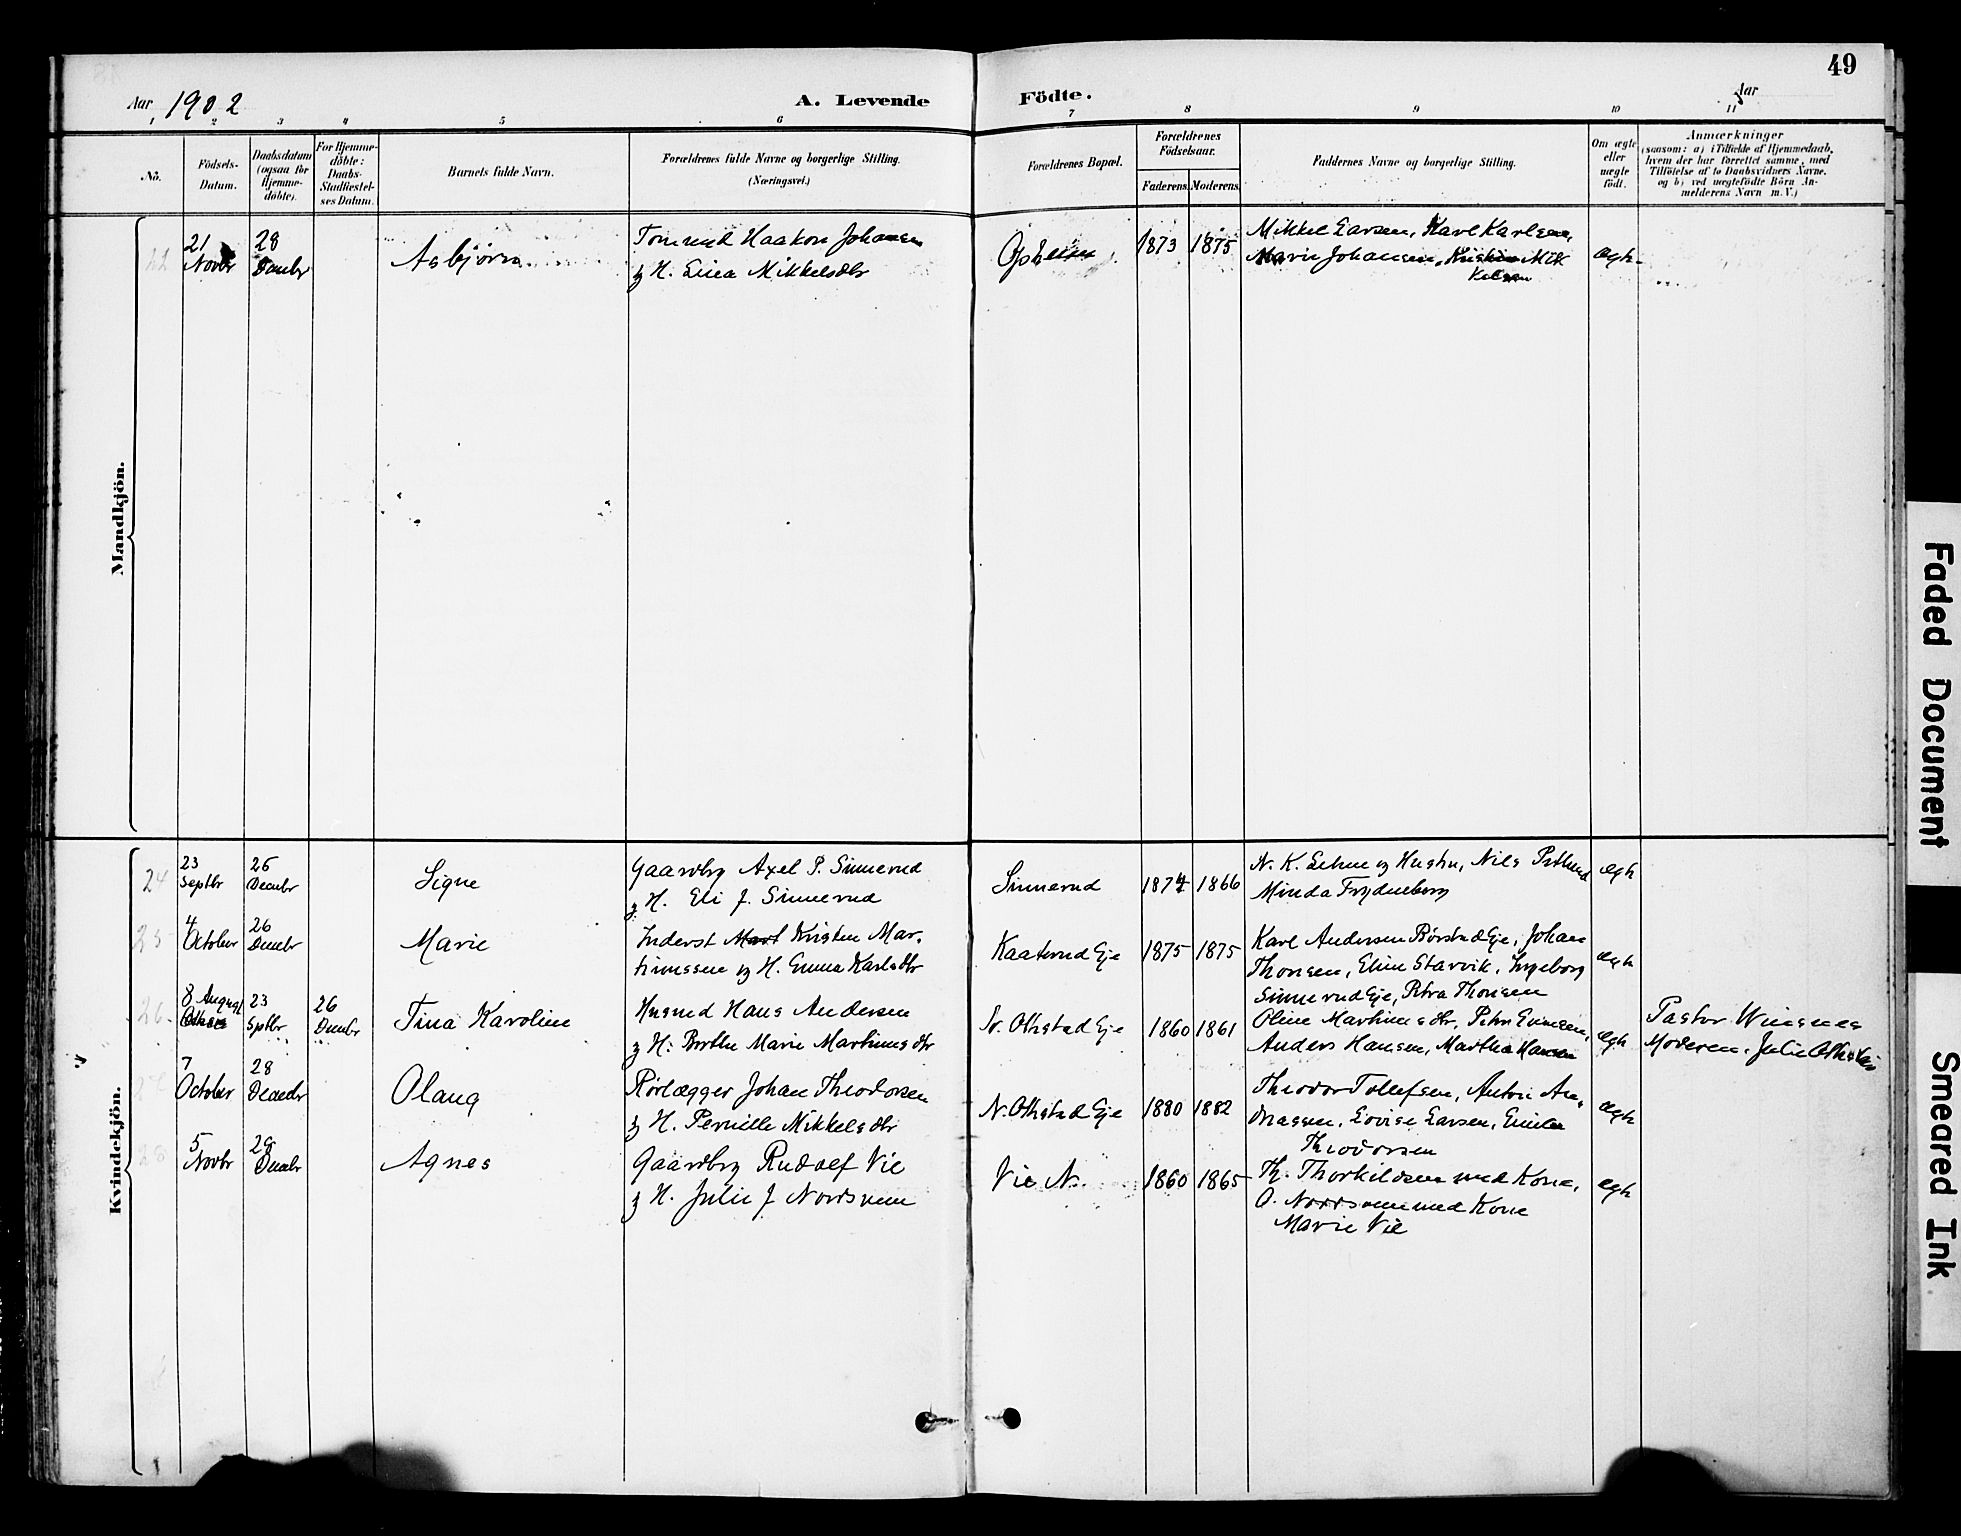 49
Aar 1902
A. Levende
Födte.
Aar
1 2 3 4 5 6 7 8 9 10 11
No.
Födsels-
Datum.
Daabsdatum
(ogsaa for
Hjemme-
döbte).
For Hjemme-
döbte:
Daabs-
Stadfæstel-
ses Datum.
Barnets fulde Navn.
Forældrenes fulde Navne og borgerlige Stilling.
(Næringsvei.)
Forældrenes Bopæl.
Forældrenes
Födselsaar.
Faderens. Moderens.
Faddernes Navne og borgerlige Stilling.
Om ægte
eller
uægte
födt.
Anmærkninger
(saasom: a) i Tilfælde af Hjemmedaab,
hvem der har forrettet samme, med
Tilföielse af to Daabsvidners Navne.
og b) ved uægtefödte Börn An-
melderens Navn m. V.)
Mandkjön.
21
Novbr
28
Decmbr
Asbjörn
Haakon Johansen
og H. Lina Mikkelsdtr
1873 1875
Mikkel Larsen, Karl Karlsen,
Marie Johansen, Kristine Mik
kelsen
ægte
Kvindekjön.
24
23
Septbr
26
Decmbr
Signe
Gaardbrg Axel P. Sinnerud
og H. Eli J. Sinnerud
Sinnerud
1874 1866
N. K. Lehne og Hustru, Nils
Minda Frydenborg
ægte
25
4
October
26
Decmbr
Marie
Inderst Kristen Mar-
tinussen og H. Emma Karlsdtr
Kaaterud Eje
1875 1875
Karl Andersen Börstad Eje, Johan
Thorsen, Eline Starvik, Ingeborg
Sinnerud Eje, Petra Thorsen
ægte
26
8 August
23
Septbr
26
Decmbr
Tina Karoline
Husmd Hans Andersen
og H. Berthe Marie Martinusdtr
N. Othstad Eje
1860 1861
Oline Martinusdtr, Peter Evensen,
Anders Hansen, Martha Hansen
ægte
Pastor Wiesnes
Moderen, Julie
7
October
28
Decmbr
Olaug
Rörlægger Johan Theodorsen
og H. Pernille Mikkelsdtr
N. Othstad Eje
1880 1882
Theodor Tollefsen, Anton An-
dreassen, Lovise Larsen, Emilie
Theodorsen
ægte
28
5
Novbr
29
Decmbr
Agnes
Gaardbrg Rudolf Vie
og H. Julie J Nordsveen
Vie N.
1860 1865
Th. Thorkildsen med Kone,
O. Nordsveen med Kone
Marie Vie
ægte
Faded Document
Smeared Ink